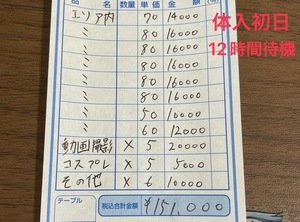 体入初日
12時間待機
品 名 数量 単価 金額
エリア内 70 14000
〃 80 16000
〃 80 16000
〃 80 16000
〃 80 16000
〃 80 16000
〃 50 10000
〃 60 12000
動画撮影 × 5 20000
コスプレ × 5 5000
その他 × 6 10000
テーブル 税込合計金額 ¥151,000